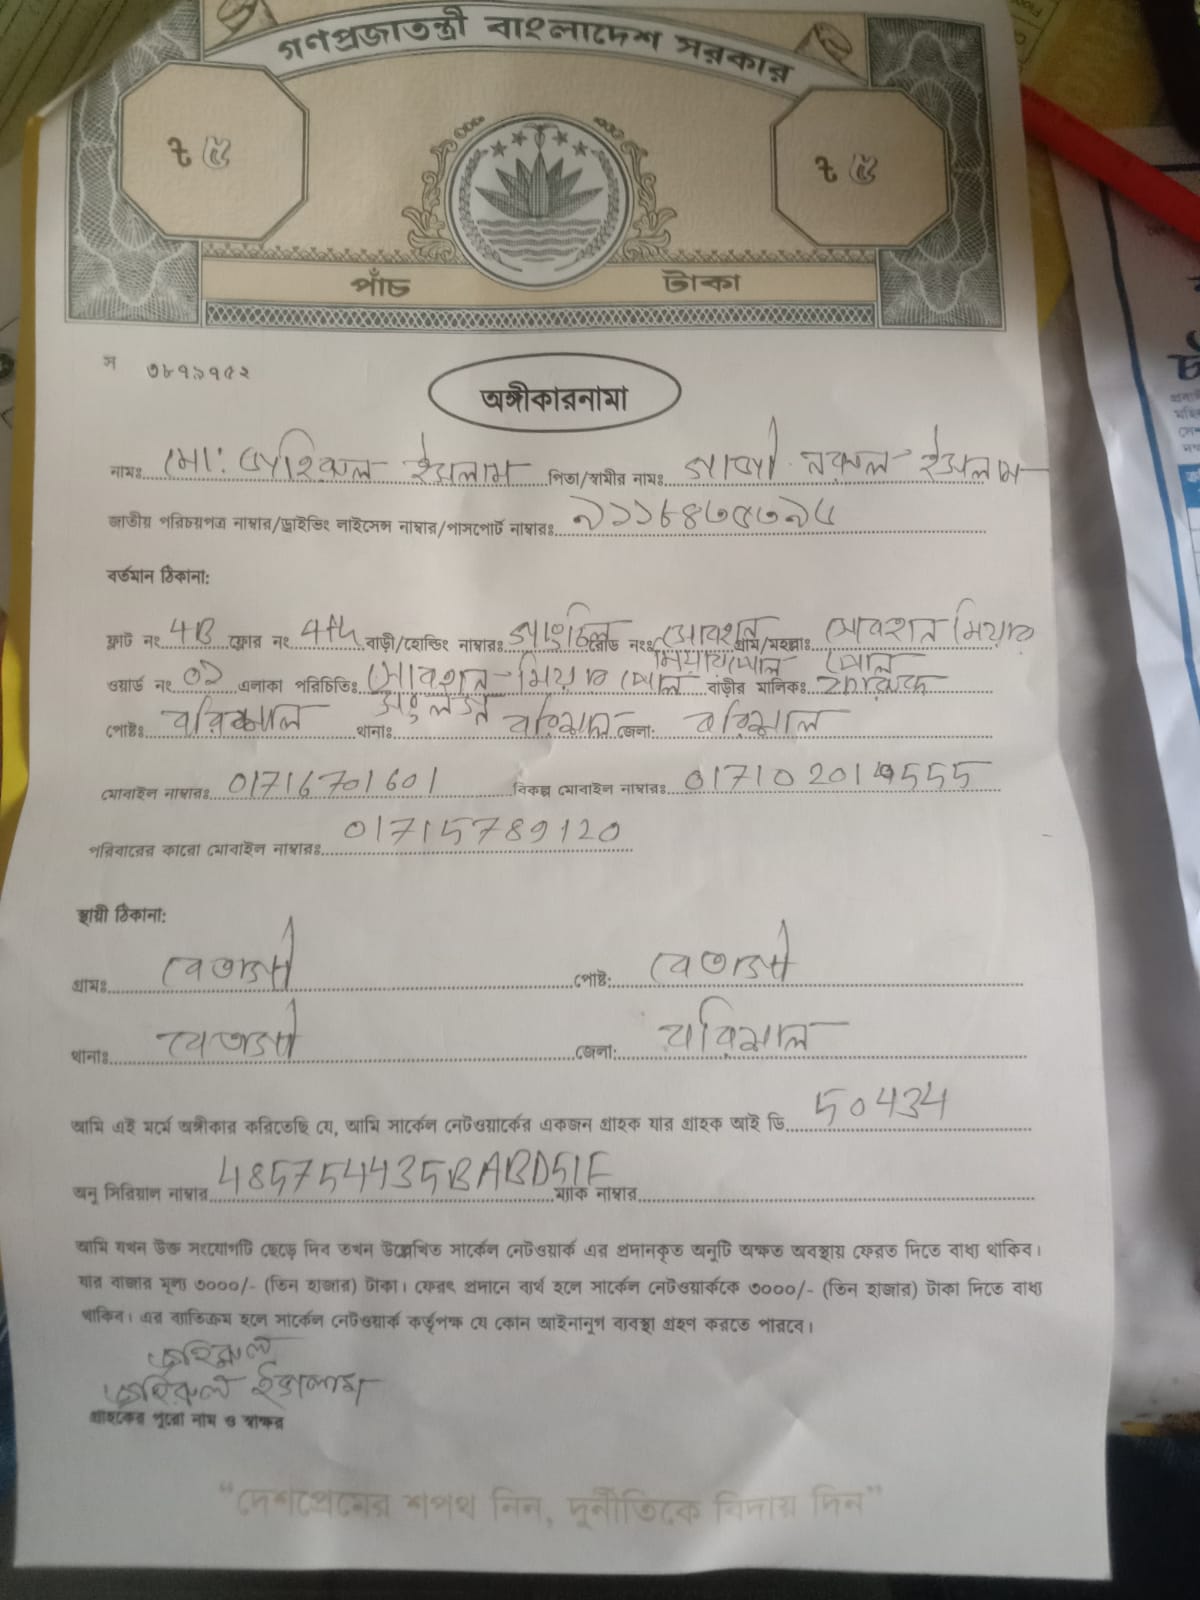 গণপ্রজাতন্ত্রী বাংলাদেশ সরকার
৳ ৫ ৳ ৫
পাঁচ টাকা
স ৩৮৭৯৭৫২
অঙ্গীকারনামা
নামঃ মো: জহিরুল ইসলাম পিতা/স্বামীর নামঃ ইসলাম
জাতীয় পরিচয়পত্র নাম্বার/ড্রাইভিং লাইসেন্স নাম্বার/পাসপোর্ট নাম্বারঃ
বর্তমান ঠিকানা:
ফ্লাট নং 4B ফ্লোর নং 4th বাড়ী/হোল্ডিং নাম্বারঃ গাংচিল রোড নংঃ গ্রাম/মহল্লাঃ
ওয়ার্ড নং এলাকা পরিচিতিঃ বাড়ীর মালিকঃ
পোষ্টঃ বরিশাল থানাঃ বরিশাল জেলা: বরিশাল
মোবাইল নাম্বারঃ 01716701601 বিকল্প মোবাইল নাম্বারঃ
পরিবারের কারো মোবাইল নাম্বারঃ 01715789120
স্থায়ী ঠিকানা:
গ্রামঃ বেতাগী পোষ্ট: বেতাগী
থানাঃ বেতাগী জেলা: বরিশাল
আমি এই মর্মে অঙ্গীকার করিতেছি যে, আমি সার্কেল নেটওয়ার্কের একজন গ্রাহক যার গ্রাহক আই ডি 50434
অনু সিরিয়াল নাম্বার 485754435BABD51F ম্যাক নাম্বার
আমি যখন উক্ত সংযোগটি ছেড়ে দিব তখন উল্লেখিত সার্কেল নেটওয়ার্ক এর প্রদানকৃত অনুটি অক্ষত অবস্থায় ফেরত দিতে বাধ্য থাকিব।
যার বাজার মূল্য ৩০০০/- (তিন হাজার) টাকা। ফেরৎ প্রদানে ব্যর্থ হলে সার্কেল নেটওয়ার্ককে ৩০০০/- (তিন হাজার) টাকা দিতে বাধ্য
থাকিব। এর ব্যতিক্রম হলে সার্কেল নেটওয়ার্ক কর্তৃপক্ষ যে কোন আইনানুগ ব্যবস্থা গ্রহণ করতে পারবে।
জহিরুল
জহিরুল ইসলাম
গ্রাহকের পুরো নাম ও স্বাক্ষর
“দেশপ্রেমের শপথ নিন, দুর্নীতিকে বিদায় দিন”